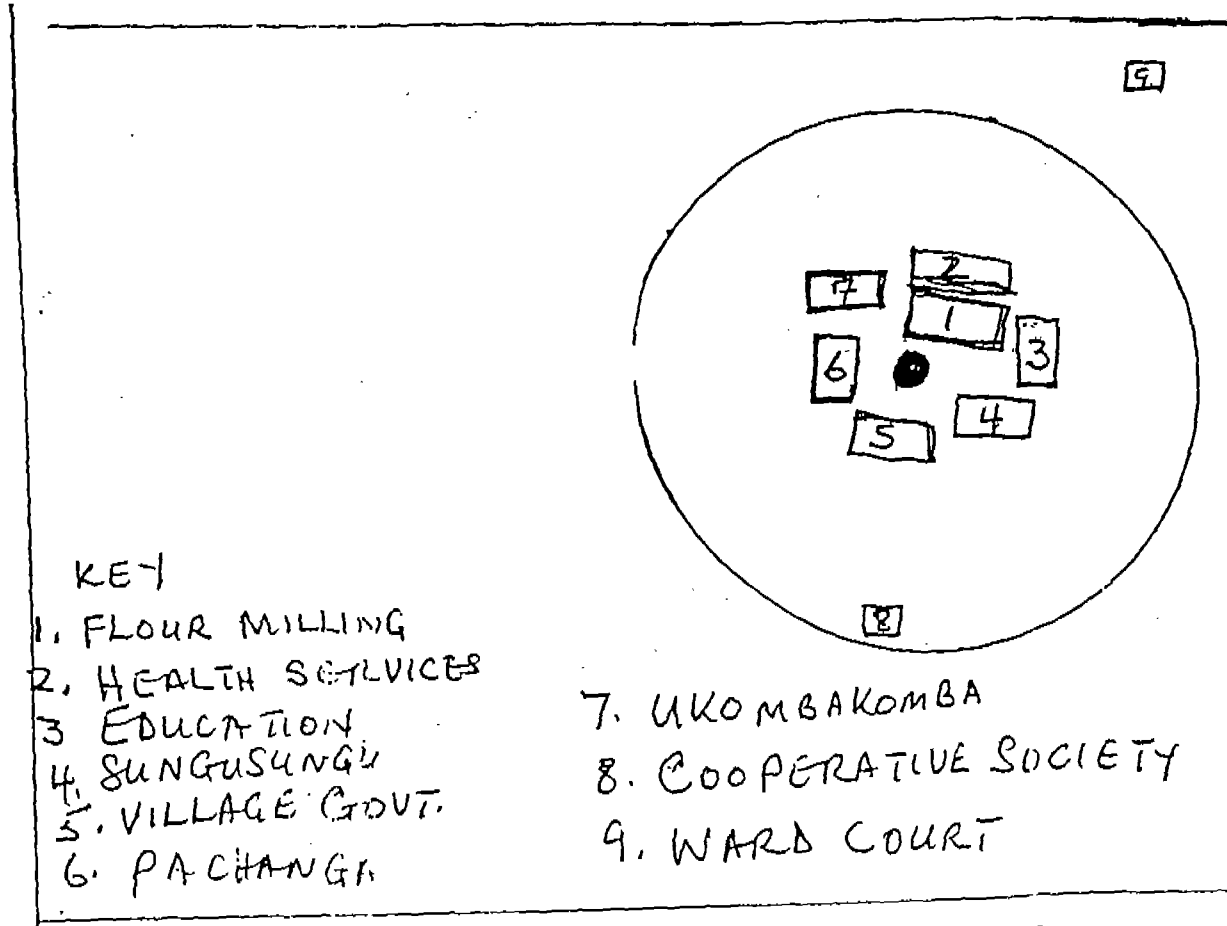 9
2
7
1
6
3
4
5
8
KEY
1. FLOUR MILLING
2. HEALTH SERVICES
3 EDUCATION
4. SUNGUSUNGU
5. VILLAGE GOVT.
6. PACHANGA
7. UKOMBAKOMBA
8. COOPERATIVE SOCIETY
9. WARD COURT